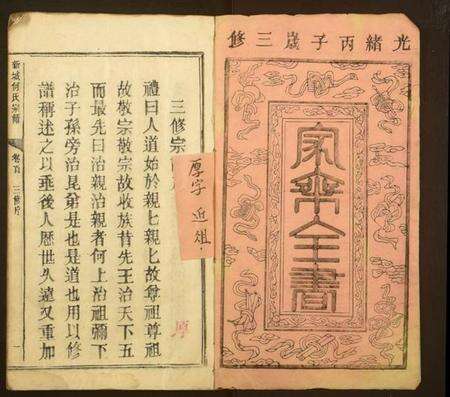 光緒丙子歲三修
家乘全書
三修宗
厚字 近祖
禮曰人道始於親親〻故尊祖尊祖
故敬宗敬宗故收族昔先王治天下五
而最先曰治親治親者何上治祖禰下
治子孫旁治昆弟是也是道也用以修
譜稱述之以垂後人歷世久遠又重加
新城何氏宗譜
卷首
三修序
一
厚